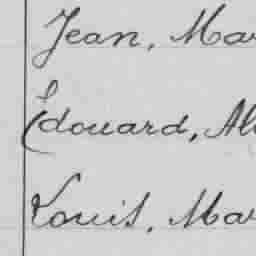 Jean, Mar
Édouard, Al
Louis, Mar